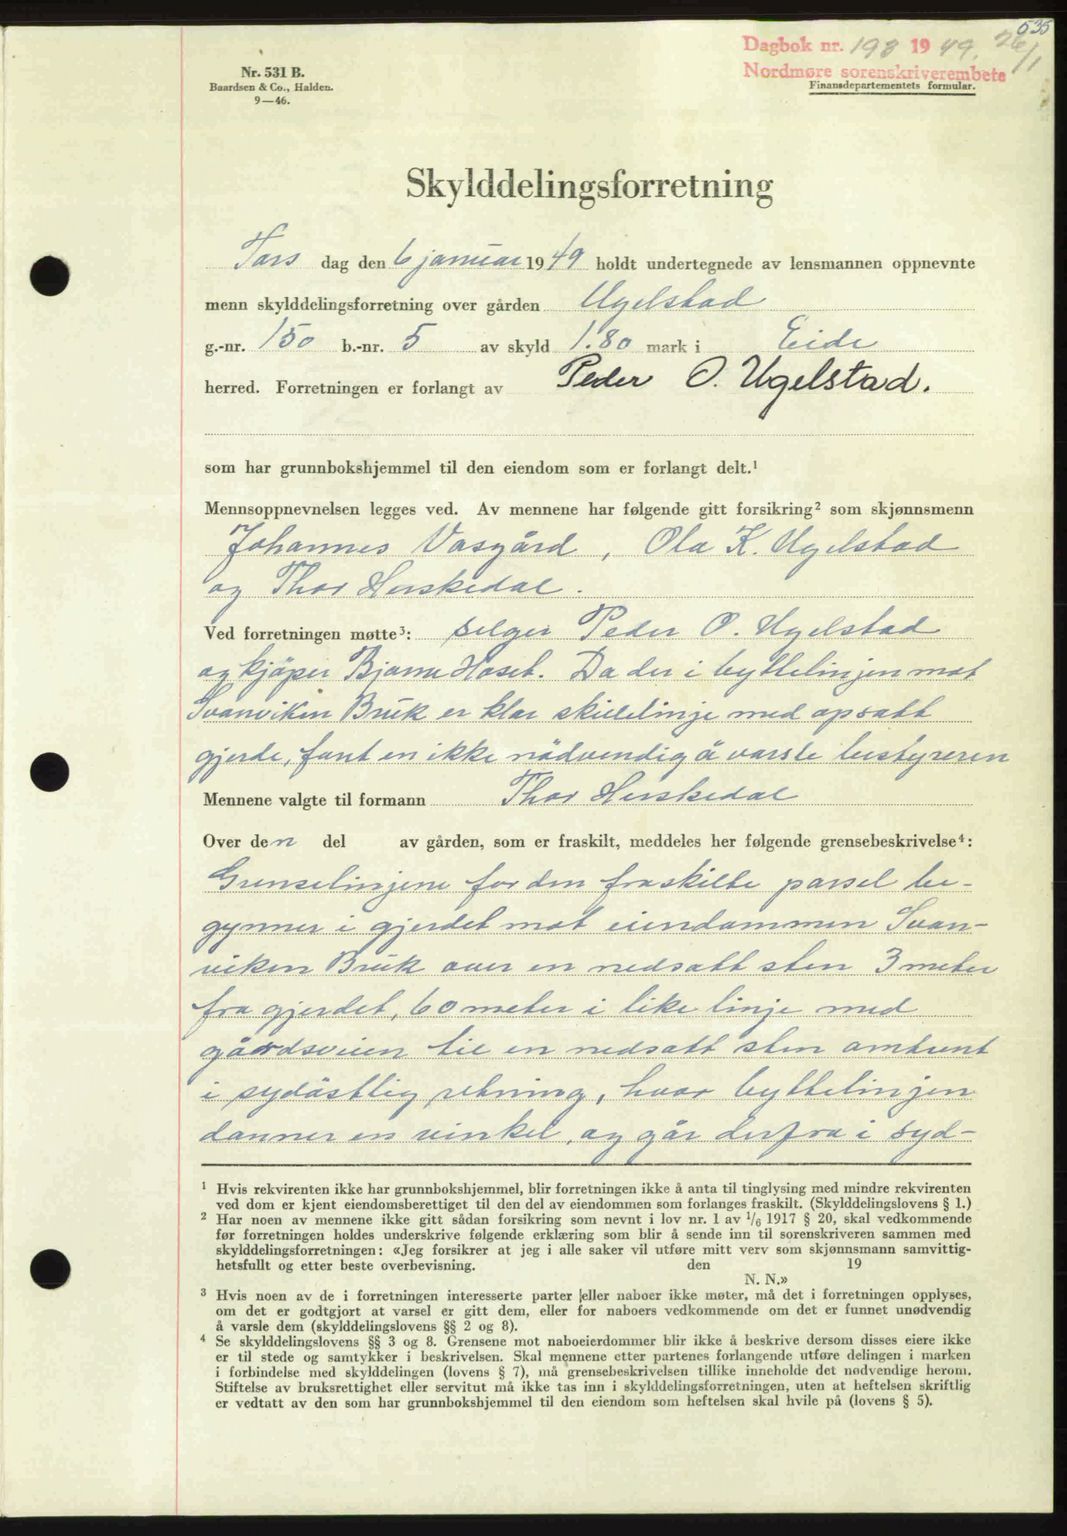 535
Dagbok nr. 198 1949. 26/1
Nordmøre sorenskriverembete
Nr. 531 B.
Baardsen & Co., Halden.
9—46.
Finansdepartementets formular.
Skylddelingsforretning
Tors dag den 6 januar 1949 holdt undertegnede av lensmannen oppnevnte
menn skylddelingsforretning over gården Ugelstad
g.-nr. 150 b.-nr. 5 av skyld 1.80 mark i Eide
herred. Forretningen er forlangt av Peder O. Ugelstad.
som har grunnbokshjemmel til den eiendom som er forlangt delt.¹
Mennsoppnevnelsen legges ved. Av mennene har følgende gitt forsikring² som skjønnsmenn
Johannes Vasgård, Ola K. Ugelstad
og Thor Herskedal.
Ved forretningen møtte³: selger Peder O. Ugelstad
og kjøper Bjarne Hoset. Da der i byttelinjen mot
Svanviken Bruk er klar skillelinje med opsatt
gjerde, fant en ikke nödvendig å varsle bestyreren
Mennene valgte til formann Thor Herskedal
Over den del av gården, som er fraskilt, meddeles her følgende grensebeskrivelse⁴:
Grenselinjene for den fraskilte parsel be-
gynner i gjerdet mot eiendommen Svan-
viken Bruk over en nedsatt sten 3 meter
fra gjerdet, 60 meter i like linje med
gårdsveien til en nedsatt sten omtrent
i sydöstlig retning, hvor byttelinjen
danner en vinkel, og går derfra i syd-
¹ Hvis rekvirenten ikke har grunnbokshjemmel, blir forretningen ikke å anta til tinglysing med mindre rekvirenten
ved dom er kjent eiendomsberettiget til den del av eiendommen som forlanges fraskilt. (Skylddelingslovens § 1.)
² Har noen av mennene ikke gitt sådan forsikring som nevnt i lov nr. 1 av 1/6 1917 § 20, skal vedkommende
før forretningen holdes underskrive følgende erklæring som blir å sende inn til sorenskriveren sammen med
skylddelingsforretningen: «Jeg forsikrer at jeg i alle saker vil utføre mitt verv som skjønnsmann samvittig-
hetsfullt og etter beste overbevisning. den 19
N. N.»
³ Hvis noen av de i forretningen interesserte parter eller naboer ikke møter, må det i forretningen opplyses,
om det er godtgjort at varsel er gitt dem, eller for naboers vedkommende om det er funnet unødvendig
å varsle dem (skylddelingslovens §§ 2 og 8).
⁴ Se skylddelingslovens §§ 3 og 8. Grensene mot naboeierdommer blir ikke å beskrive dersom disses eiere ikke
er til stede og samtykker i beskrivelsen. Skal mennene etter partenes forlangende utføre delingen i marken
i forbindelse med skylddelingen (lovens § 7), må grensebeskrivelsen tillike inneholde det nødvendige herom.
Stiftelse av bruksrettighet eller servitut må ikke tas inn i skylddelingsforretningen, uten at heftelsen skriftlig
er vedtatt av den som har grunnbokshjemmel til den eiendom som heftelsen skal hvile på (lovens § 5).